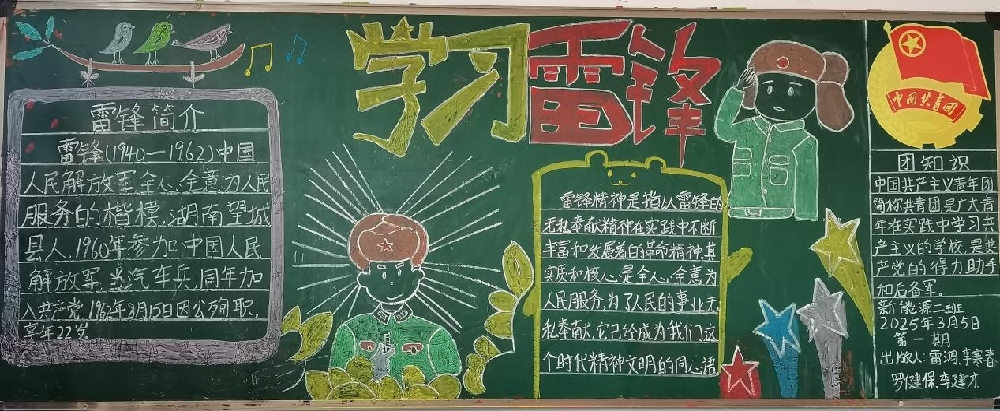 学习雷锋
雷锋简介
雷锋(1940—1962)中国
人民解放军全心全意为人民
服务的楷模,湖南望城
县人,1960年参加中国人民
解放军,当汽车兵,同年加
入共产党,1962年8月15日因公殉职,
享年22岁
雷锋精神是指以雷锋的
无私奉献精神在实践中不断
丰富和发展着的革命精神,其
实质和核心是全心全意为
人民服务,为了人民的事业无
私奉献,它已经成为我们这
个时代精神文明的同心语
中国共青团
团知识
中国共产主义青年团
简称共青团是广大青
年在实践中学习共
产主义的学校,是共
产党的得力助手
和后备军。
新能源二班
2025年3月5日
第一期
出版人:雷鸿,李寒春
罗健保,李建东